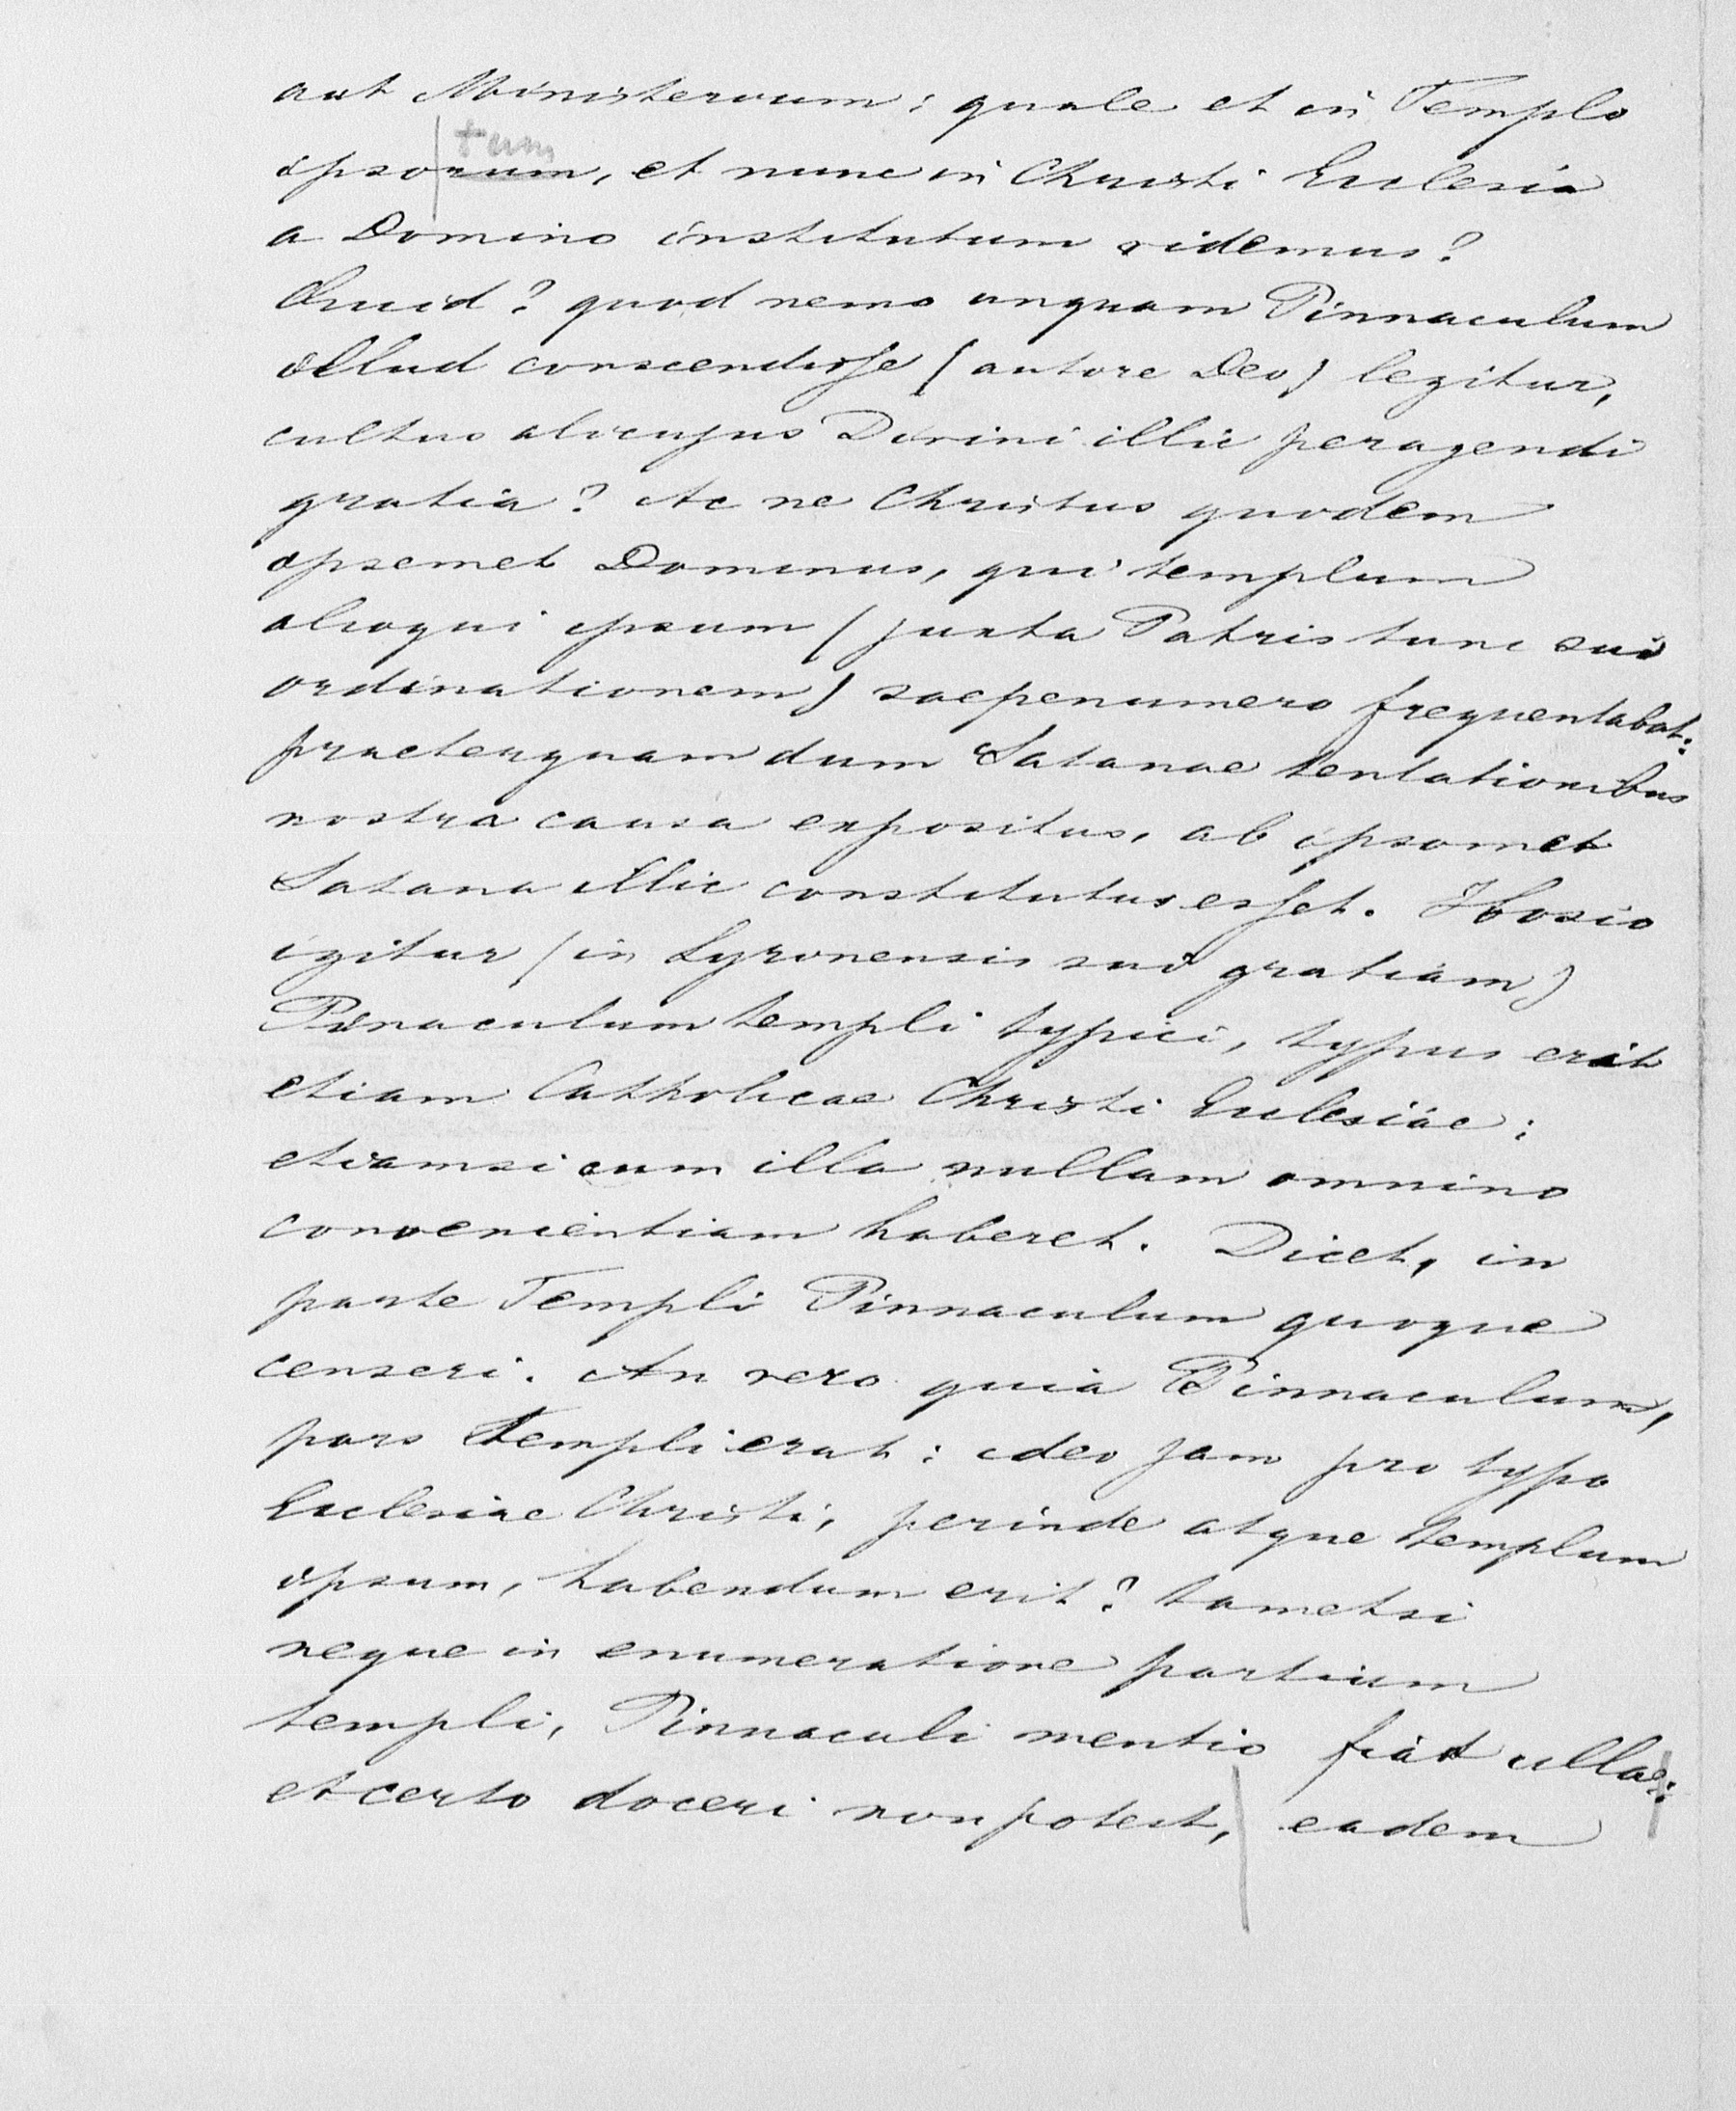 aut Ministerium: quale et in Templo
tum
ipso rum, et nunc in Christi Ecclesia
a Domino institutum videmus?
Quid? quod nemo unquam Pinnaculum
illud conscendisse (autore Deo) legitur,
cultus alicujus Divini illic peragendi
gratia? Ac ne Christus quidem
ipsemet Dominus, qui templum
alioqui ipsum (juxta Patris tunc sui
ordinationem) saepenumero frequentabat:
praeterquam dum Satanae tentationibus
nostra causa expositus, ab ipsomet
Satana illic constitutus esset. Hosio
igitur (in Lyronensis sui gratiam)
Pinaculum templi typici, typus erit
etiam Catholicae Christi Ecclesiae:
etiamsi cum illa nullam omnino
convenientiam haberet. Dicet, in
parte Templi Pinnaculum quoque
censeri. An vero quia Pinnaculum,
pars Templi erat: ideo jam pro typo
Ecclesiae Christi, perinde atque templum
ipsum, habendum erit? tametsi
neque in enumeratione partium
templi, Pinnaculi mentio fiat ulla:
et certo doceri non potest, eadem